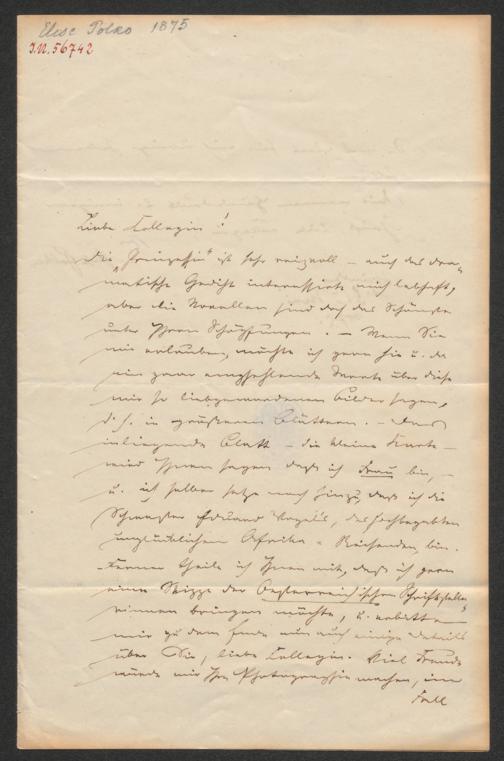 Elise Polko 1875
I.N. 56742
Liebe Collegin!
Die „Prinzessin" ist sehr reizvoll – auch das dra-
matische Gedicht interessirte mich lebhaft,
aber die Novellen sind doch das Schönste
unter Ihren Schöpfungen. – Wenn Sie
mir erlauben, möchte ich gern hie u. da
ein paar empfehlende Worte über diese
mir so liebgewordenen Bilder sagen,
d. h. in größeren Blättern. – Das
inliegende Blatt – die kleine Karte –
wird Ihnen sagen daß ich Frau bin, –
u. ich selber setze noch hinzu, daß ich die
Schwester Eduard Vogel's, des hochbegabten
unglücklichen Afrika-Reisenden, bin.
Ferner theile ich Ihnen mit, daß ich gern
eine Skizze der Oesterreichischen Schriftstelle-
rinnen bringen möchte, u. erbitte
mir zu dem Ende nun auch einige Details
über Sie, liebe Collegin. Viel Freude
würde mir Ihre Photographie machen, im
Fall